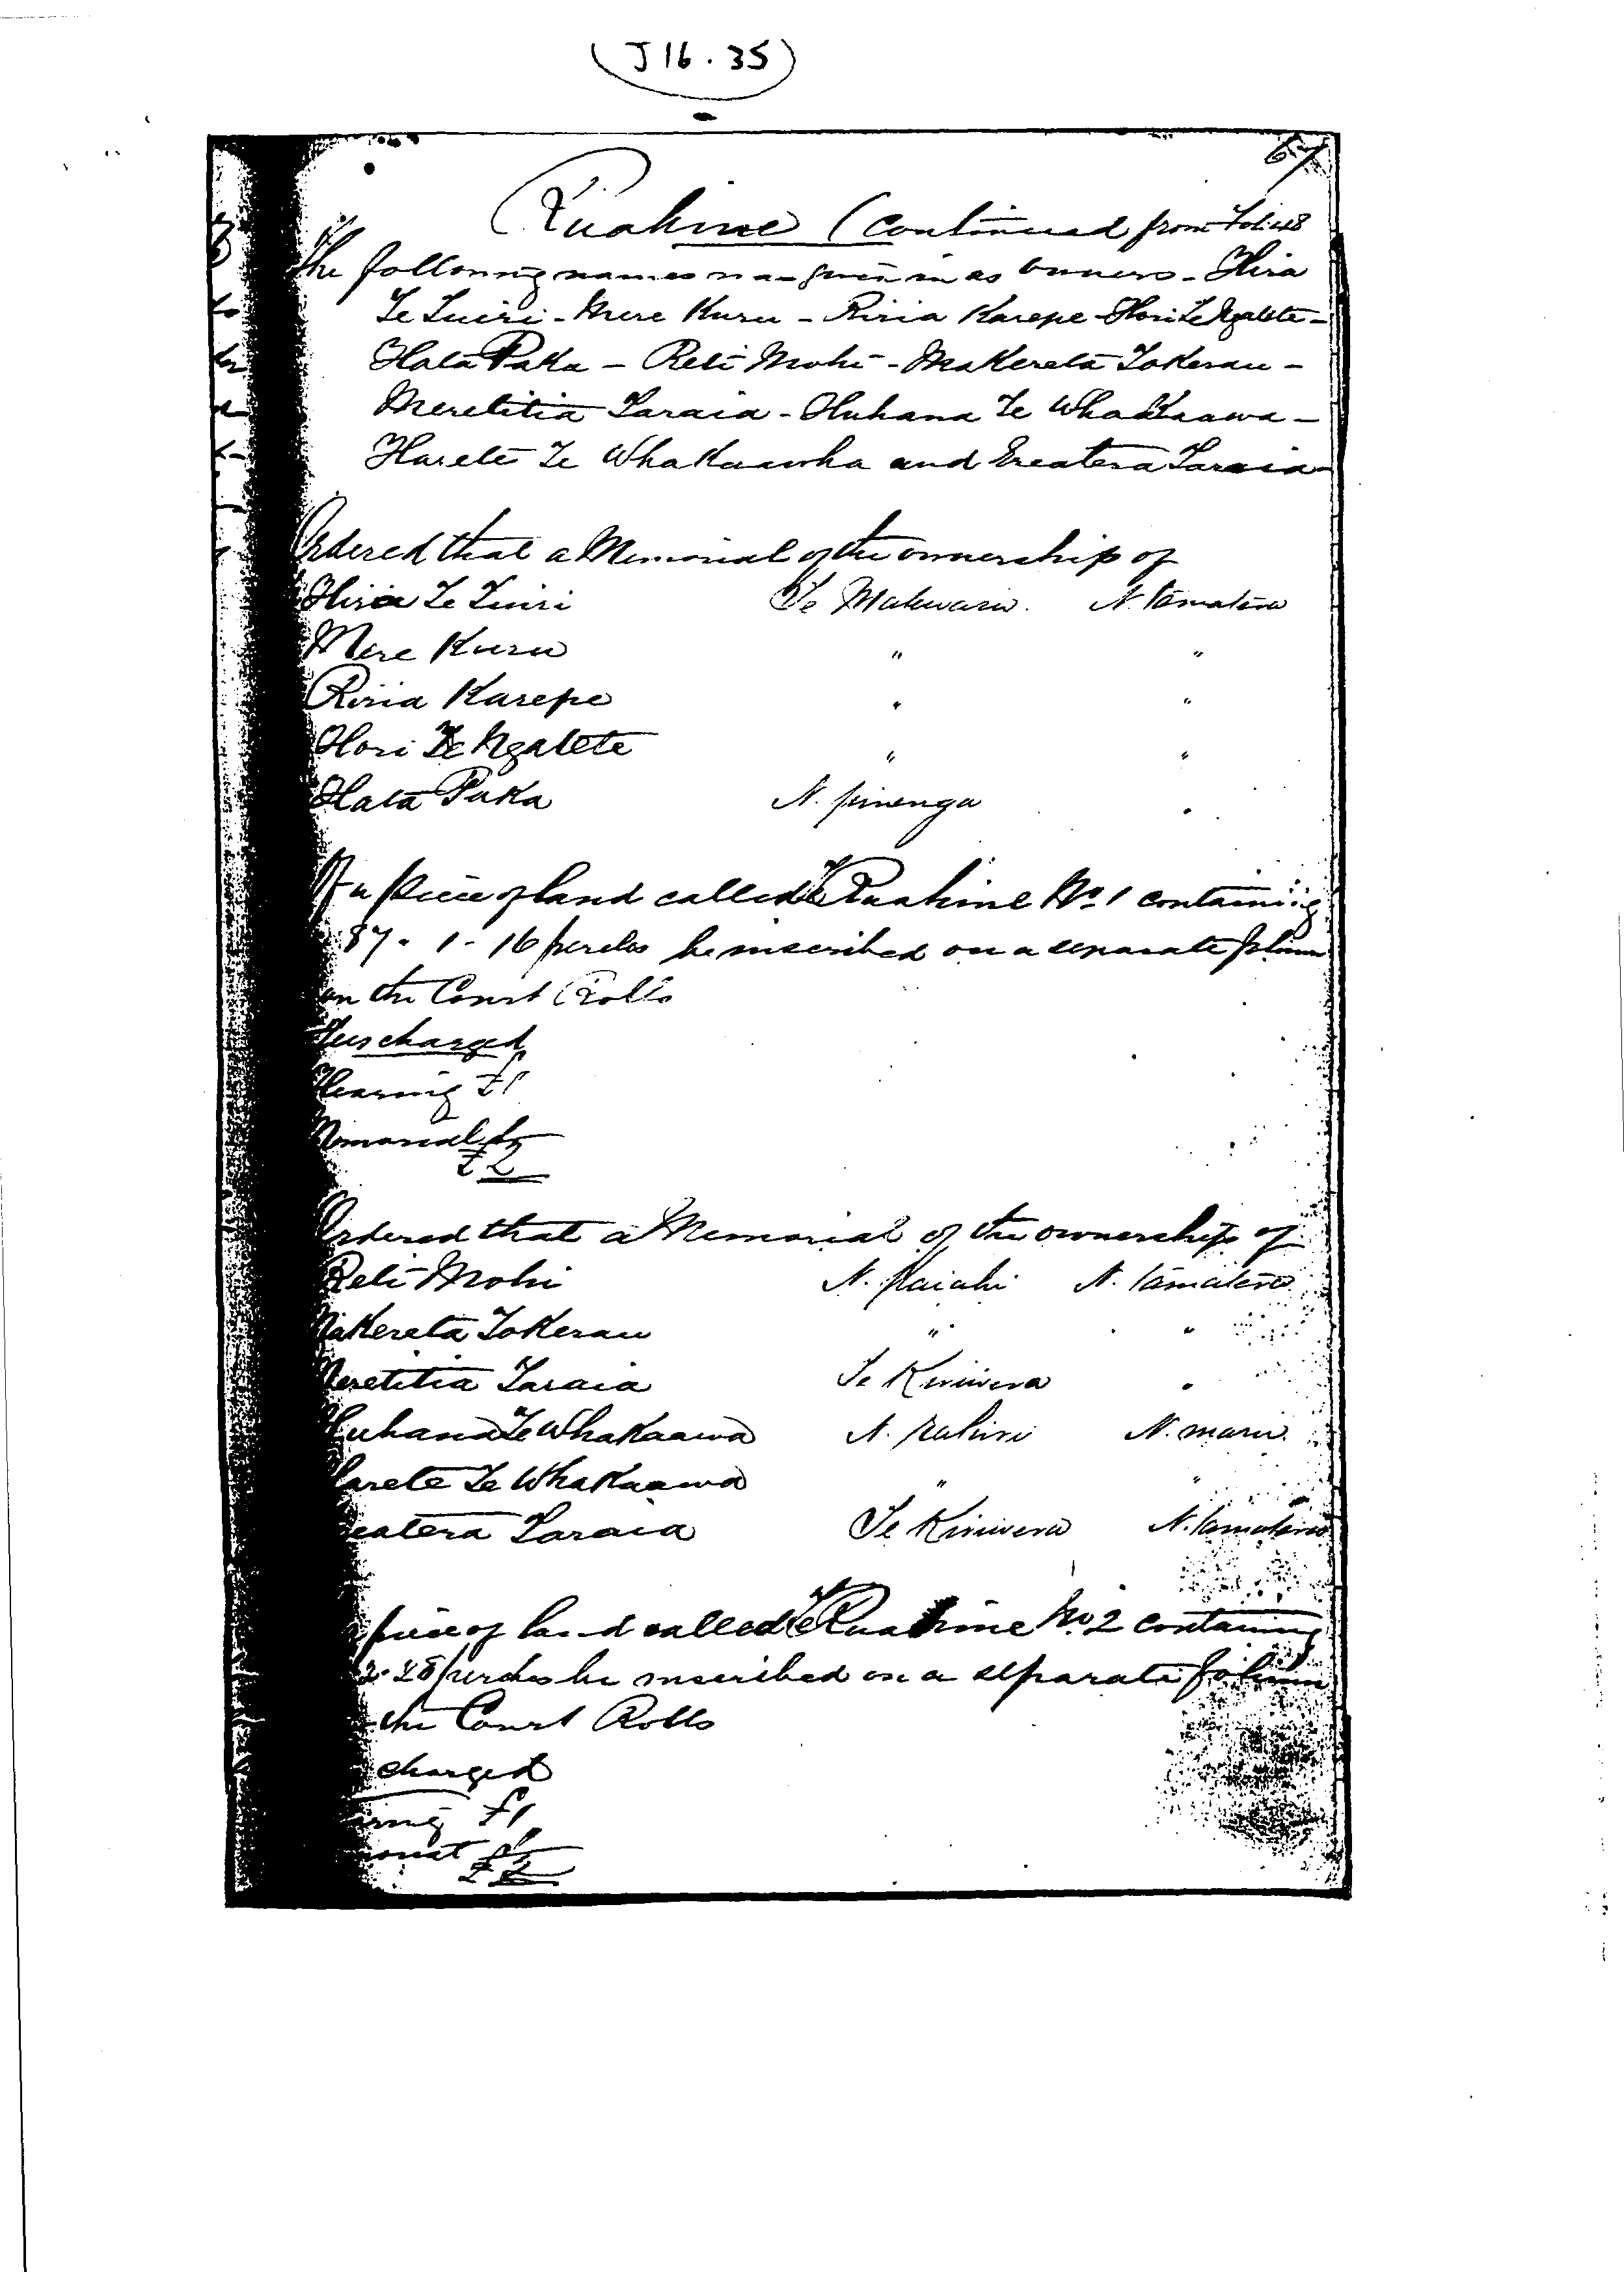 (J16.35)
67
Ruahine (Continued from Folio 48
The following names was given in as owners - Hira
Te Tuiri - Mere Kuru - Riria Karepe - Hori Te Ngatete -
Hata Paka - Reti Mohi - Makereta Tokerau -
Meretitia Taraia - Huhana Te Whakaawa -
Harete Te Whakaawha and Ereatera Taraia
Ordered that a Memorial of the ownership of
Hira Te Tuiri Te Matewaru. N. Tamatera
Mere Kuru " "
Riria Karepe " "
Hori Te Ngatete " "
Hata Paka N. pinenga "
Of a piece of land called Te Ruahine No. 1 containing
87. 1. 16 perches be inscribed on a separate folium
on the Court Rolls
Fees charged
Hearing £1
Memorial £1
£2
Ordered that a Memorial of the ownership of
Reti Mohi N. Tamatera
Makereta Tokerau " "
Meretitia Taraia Te Kiriwera "
Huhana Te Whakaawa N. maru.
Harete Te Whakaawa " "
eatera Taraia Te Kiriwera N. Tamatera
piece of land called Te Ruahine No. 2 containing
2. 28 perches be inscribed on a separate folium
the Court Rolls
charged
ring £1
morial £1
£2